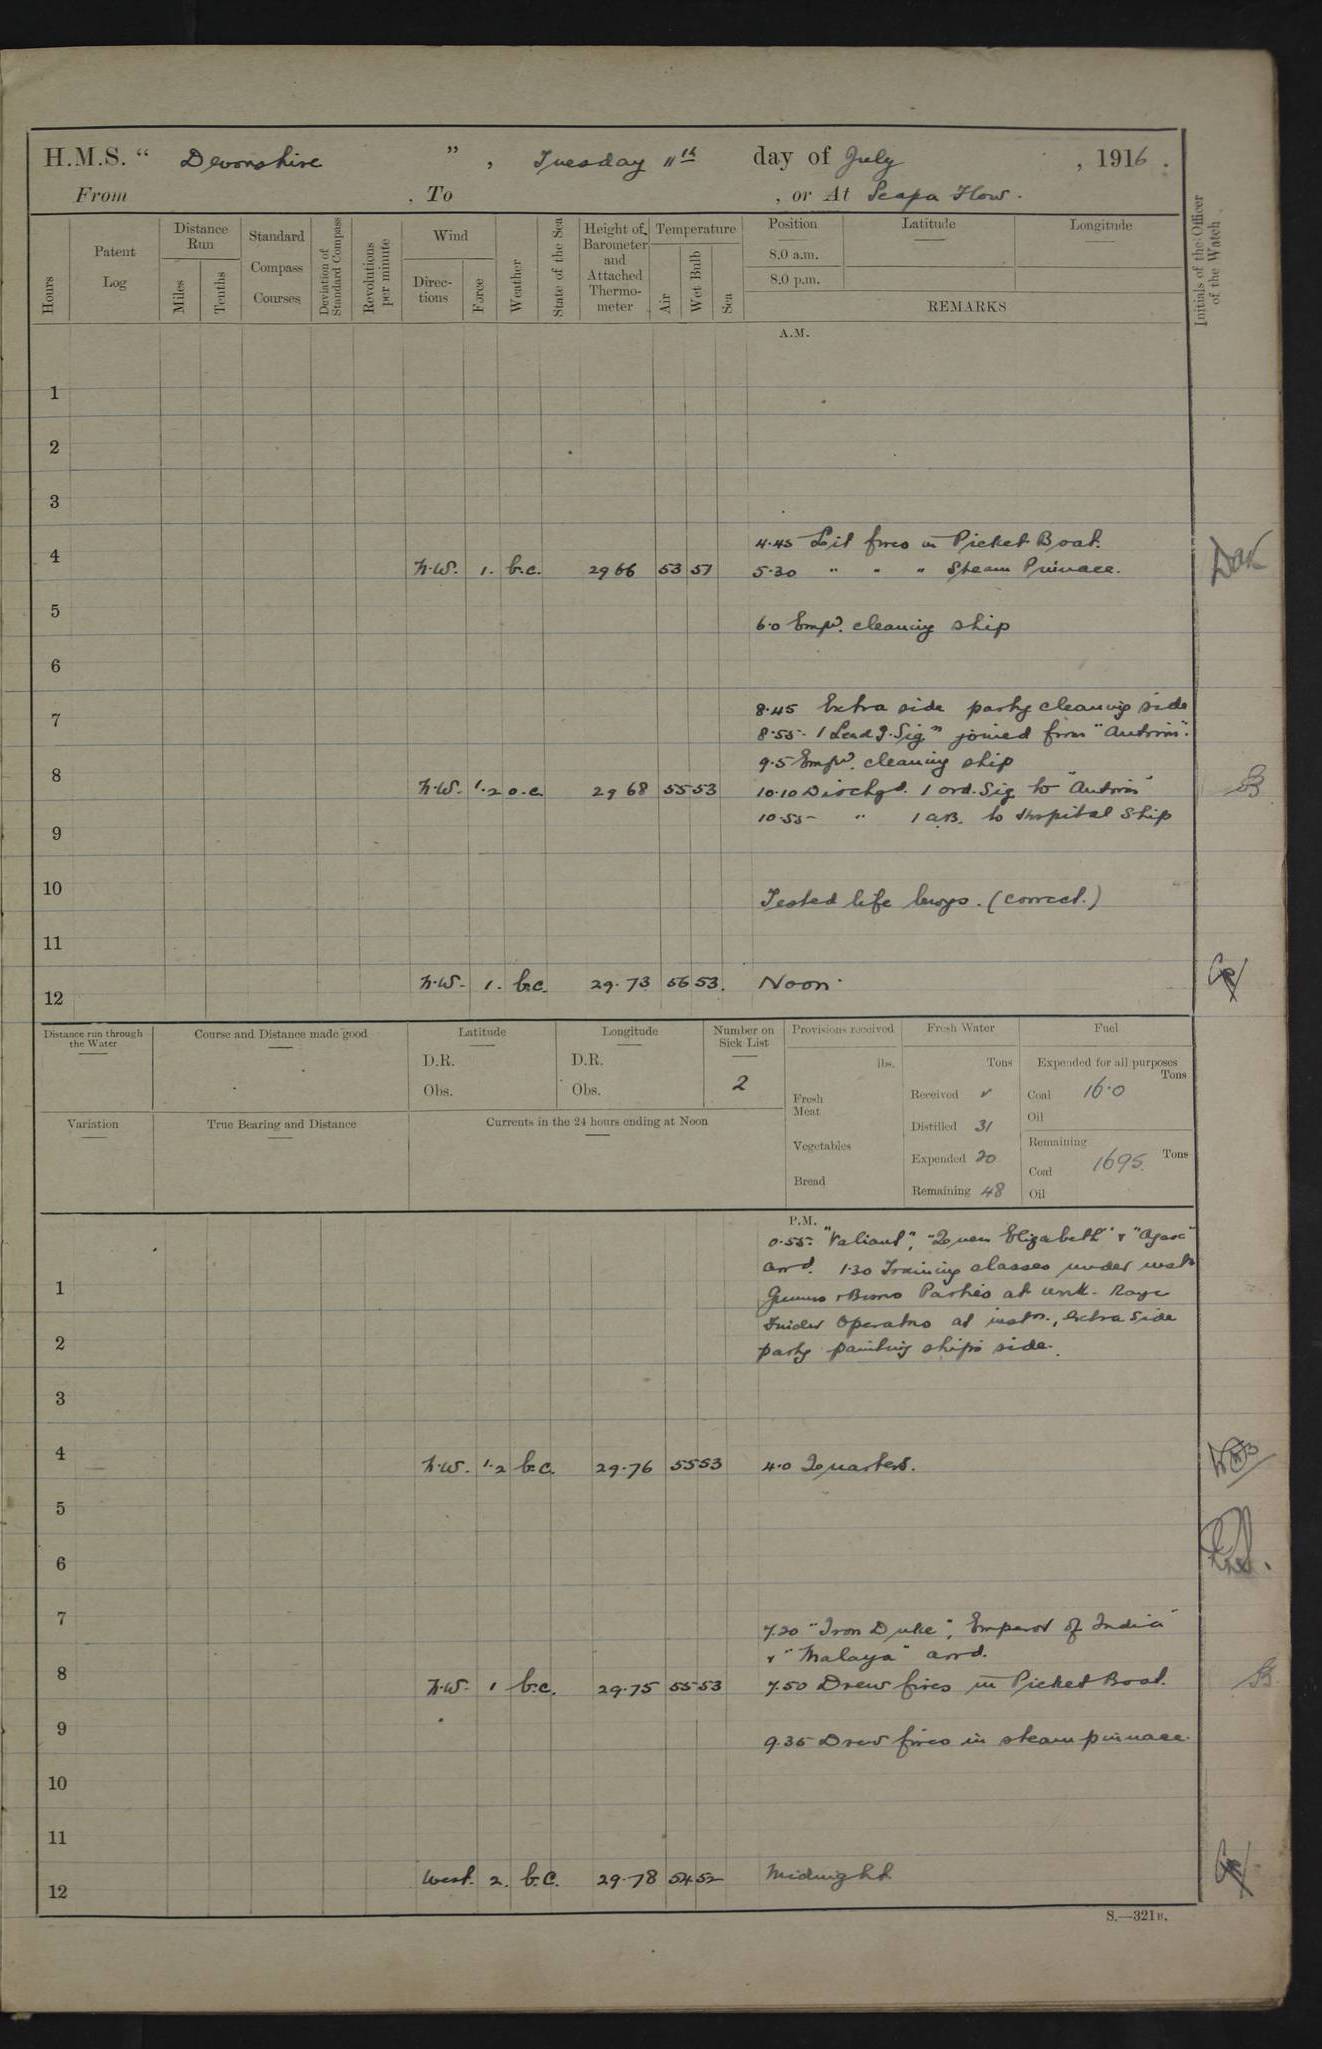 H.M.S. “ Devonshire ” , Tuesday 11th day of July , 1916 .
From , To , or At Scapa Flow.
Hours
Patent Log
Distance Run
Miles
Tenths
Standard Compass Courses
Deviation of Standard Compass
Revolutions per minute
Wind
Directions
Force
Weather
State of the Sea
Height of Barometer and Attached Thermometer
Temperature
Air
Wet Bulb
Sea
Position
8.0 a.m.
8.0 p.m.
Latitude
Longitude
REMARKS
Initials of the Officer of the Watch.
A.M.
1
2
3
4.45 Lit fires in Picket Boat.
4
N.W. 1. b.c. 29 66 53 51 5.30 " " " Steam Pinnace.
5
6.0 Empd. cleaning ship
6
8.45 Extra side party cleaning side
7
8.55 1 Leadg. Sign joined from "Antrim".
9.5 Empd. cleaning ship
8
N.W. 1.2 o.c. 29 68 55 53 10.10 Dischgd. 1 ord. Sig to "Antrim"
10.55 " 1 A.B. to Hospital Ship
9
10
Tested life buoys. (correct.)
11
N.W. 1. b.c. 29.73 56 53. Noon.
12
Distance run through the Water
Course and Distance made good
Latitude
D.R.
Obs.
Longitude
D.R.
Obs.
Number on Sick List
2
Provisions received
lbs.
Fresh Meat
Vegetables
Bread
Fresh Water
Tons
Received
Distilled 31
Expended 20
Remaining 48
Fuel
Expended for all purposes
Tons
Coal 16.0
Oil
Remaining
Tons
Coal 1695
Oil
Variation
True Bearing and Distance
Currents in the 24 hours ending at Noon
P.M.
0.55 "Valiant", "Queen Elizabeth" & "Ajax"
arrd. 1.30 Training classes under instn
1
Parties at work. Range
Operators at instn., extra side
2
party painting ships side.
3
4
N.W. 1.2 b.c. 29.76 55 53 4.0 Quarters.
5
6
7
7.20 "Iron Duke", Emperor of India"
& "Malaya" arrd.
8
N.W. 1 b.c. 29.75 55 53 7.50 Drew fires in Picket Boat.
9
9.35 Drew fires in steam pinnace.
10
11
West. 2. b.c. 29.78 54 52 Midnight
12
S.—321B.